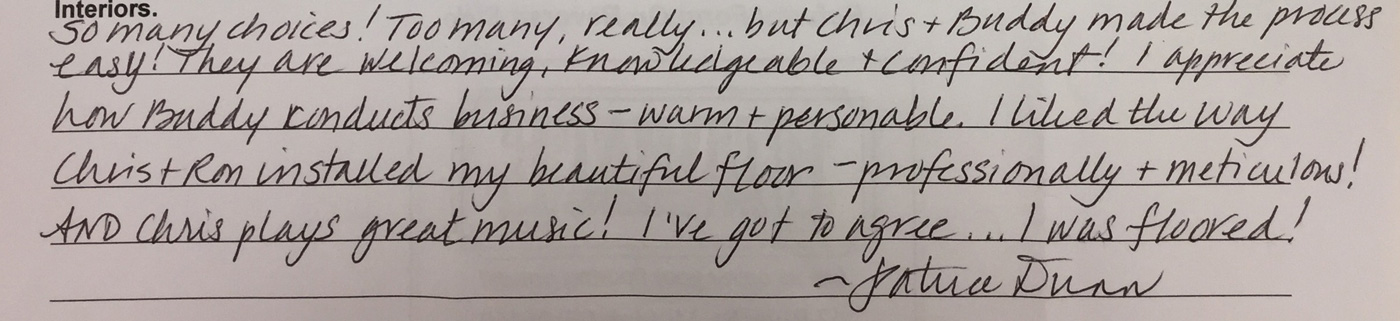 Interiors.
So many choices! Too many, really... but Chris + Buddy made the process
easy! They are welcoming, knowledgeable + confident! I appreciate
how Buddy conducts business - warm + personable. I liked the way
Chris + Ron installed my beautiful floor - professionally + meticulous!
AND Chris plays great music! I've got to agree... I was floored!
~ Patrice Dunn